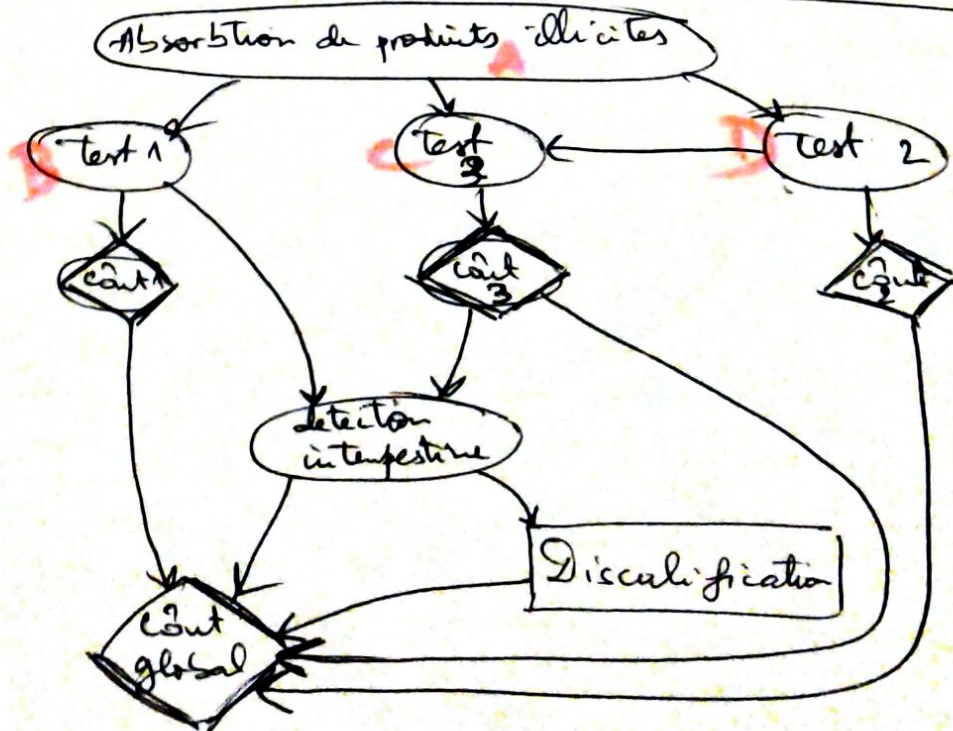 Absorbtion de produits illicites
A
B
test 1
C
test
3
D
test 2
côut 1
côut
3
côut
2
detection
intempestive
Discalification
côut
global